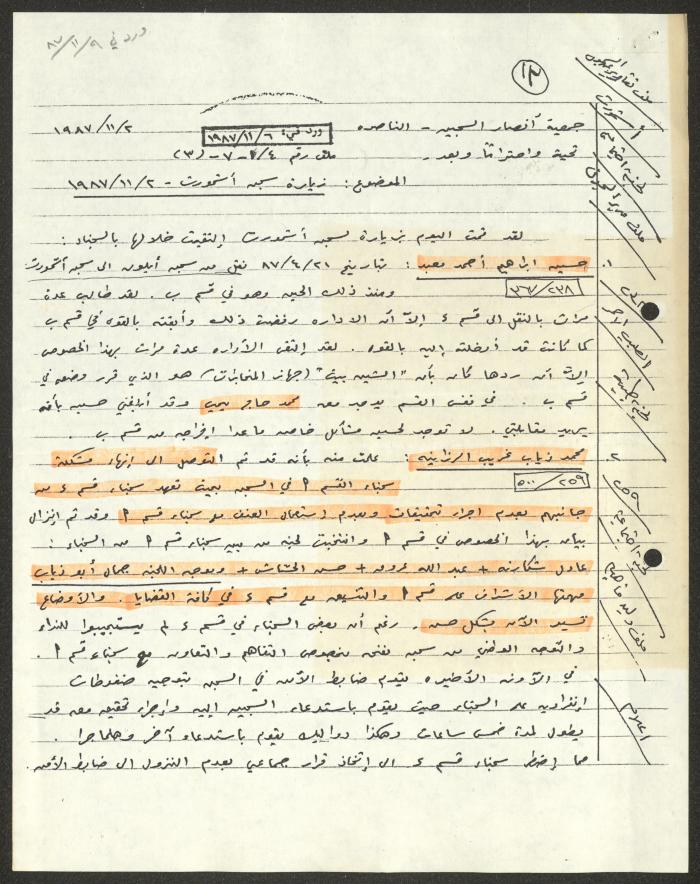 ورد في ٨٧/١١/٩
١٢
جمعية أنصار السجين - الناصرة
١٩٨٧/١١/٢
ورد في: ١٩٨٧/١١/٦
تحية واحتراماً وبعد.
ملف رقم
الموضوع: زيارة سجن أشمورت - ١٩٨٧/١١/٢
لقد قمت اليوم بزيارة لسجن أشمورت إلتقيت خلالها بالسجناء:
١. حسين ابراهيم أحمد معبد: بتاريخ ٨٧/٤/٢١ نقل من سجن أيلون الى سجن أشمورت
٣٦٧/٢٣٨
ومنذ ذلك الحين وهو في قسم ب. لقد طالب عدة
مرات بالنقل الى قسم ء إلا أن الاداره رفضت ذلك وأبقته بالقوه في قسم ب
كما كانت قد أدخلته إليه بالقوه. لقد إلتقى الأداره عدة مرات بهذا الخصوص
إلا أن ردها كان بأن "الشين بيت" (جهاز المخابرات) هو الذي قرر وضعه في
قسم ب. في نفس القسم يوجد معه محمد حاجر وقد أبلغني حسين بأنه
يريد مقابلتي. لا توجد لحسين مشاكل خاصه ماعدا إخراجه من قسم ب.
٢. محمد زياب غريب الرزاينه: علمت منه بأنه قد تم التوصل الى إنهاء مشكلة
٥٠٠/٢٥٩
سجناء القسم أ في السجن بحيث تعهد سجناء قسم ء من
جانبهم بعدم اجراء تحقيقات وبعدم إستعمال العنف مع سجناء قسم أ وقد تم إنزال
بيان بهذا الخصوص في قسم أ وانتخبت لجنه من بين سجناء قسم أ من السجناء:
عادل شكارنه + عبد الله عروق + حسن + ويوجه اللجنه جمال أبو زياب
مهمتها الأشراف على قسم أ والتنسيق مع قسم ء في كافة القضايا. والأوضاع
تسير الآن بشكل حسن. رغم أن بعض السجناء في قسم ء لم يستجيبوا للنداء
والتوجه الوطني من سجن نفحه بخصوص التفاهم والتعاون مع سجناء قسم أ.
في الآونه الأخيره يقوم ضابط الأمن في السجن بتوجيه ضغوطات
إنفراديه على السجناء حيث يقوم باستدعاء السجين إليه وإجراء تحقيق معه قد
يطول لمدة خمس ساعات وهكذا دواليك يقوم باستدعاء آخر وهلما جرا.
مما إضطر سجناء قسم ء الى إتخاذ قرار جماعي بعدم النزول الى ضابط الأمن.
أشمورت
الصليب الأحمر
اعلام